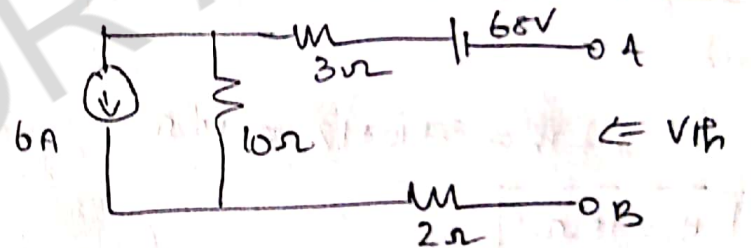 68V
A
3Ω
6A
10Ω
⇐ Vth
B
2Ω